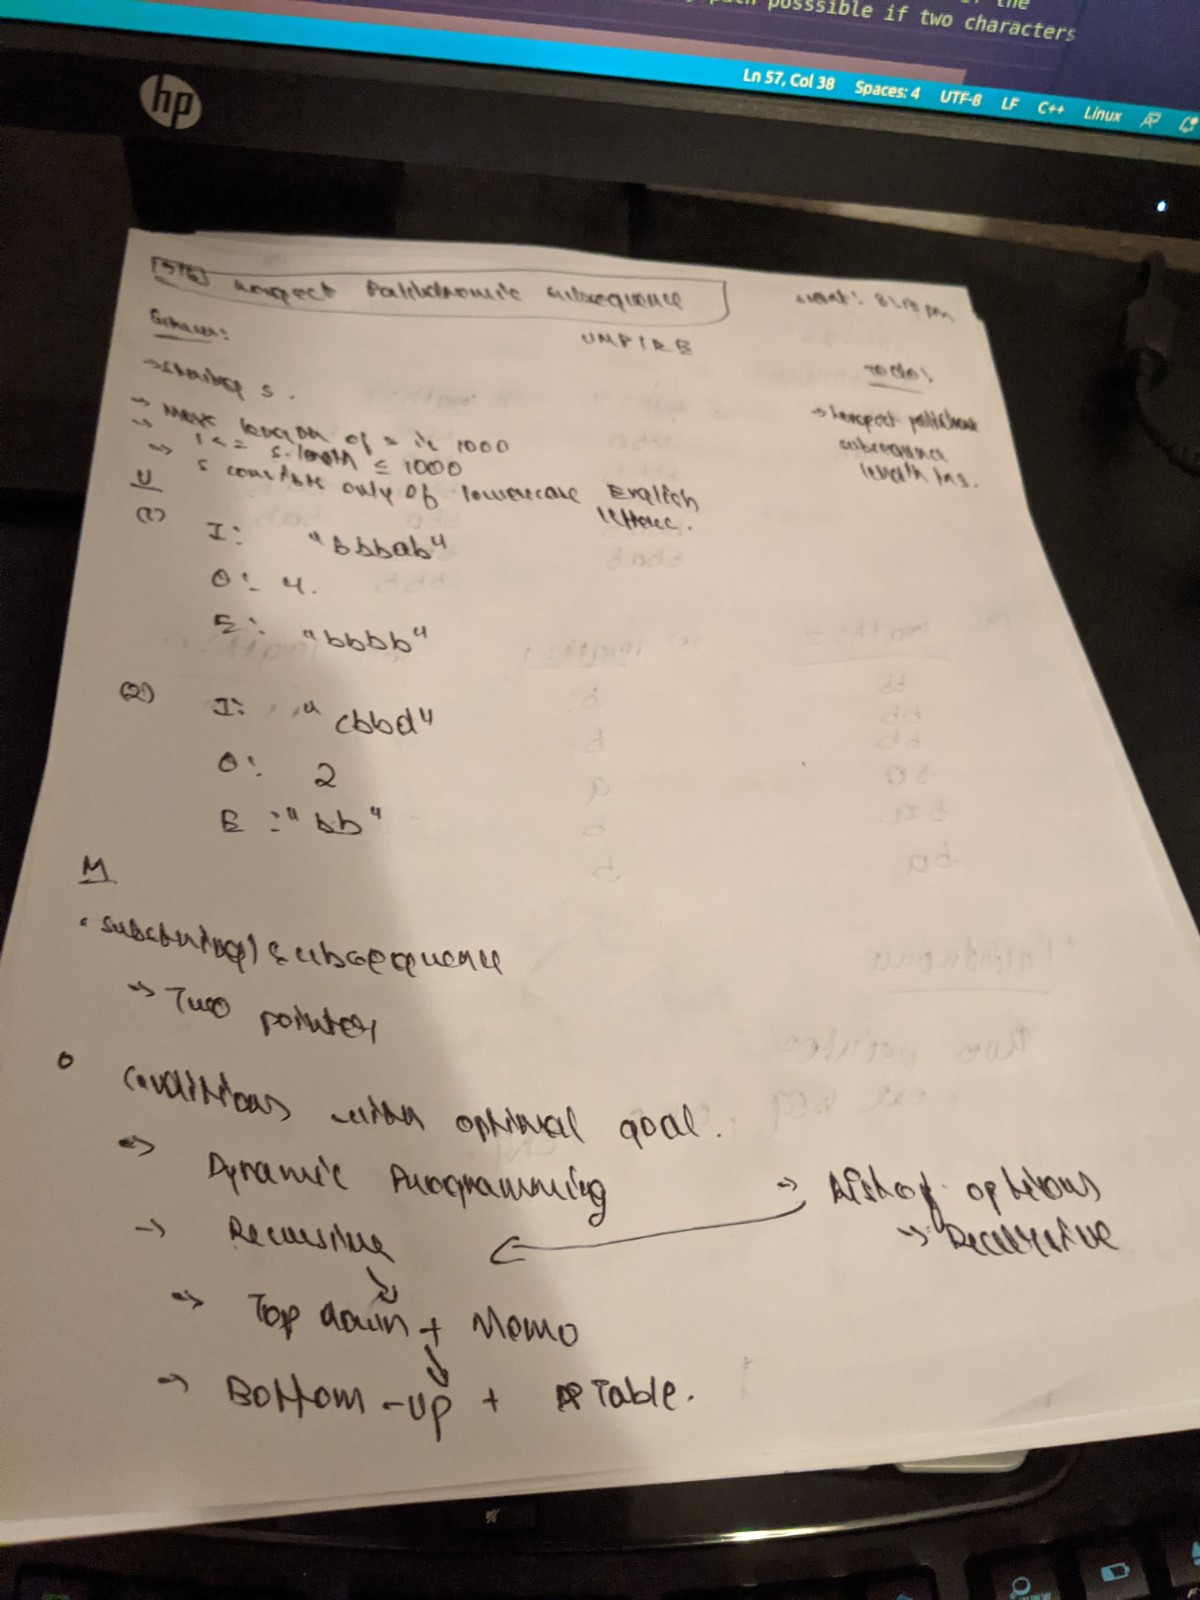 the
path posssible if two characters
Ln 57, Col 38 Spaces: 4 UTF-8 LF C++ Linux
hp
516 Longest Palindromic subsequence
start: 8:15 pm
Given:
UMPIRE
To do:
→ string s.
→ Max length of s is 1000
→ 1 <= s.length ≤ 1000
→ s consists only of lowercase English letters.
→ longest palindrome
subsequence
length in s.
U
(1)
I: "bbbab"
O: 4.
E: "bbbb"
(2)
I: "cbbd"
O: 2
E: "bb"
M
• substring/subsequence
→ Two pointers
• conditions with optimal goal.
→ Dynamic Programming
→ options
→ Recursive
→ Recursive
→ Top down + Memo
→ Bottom-up + Table.